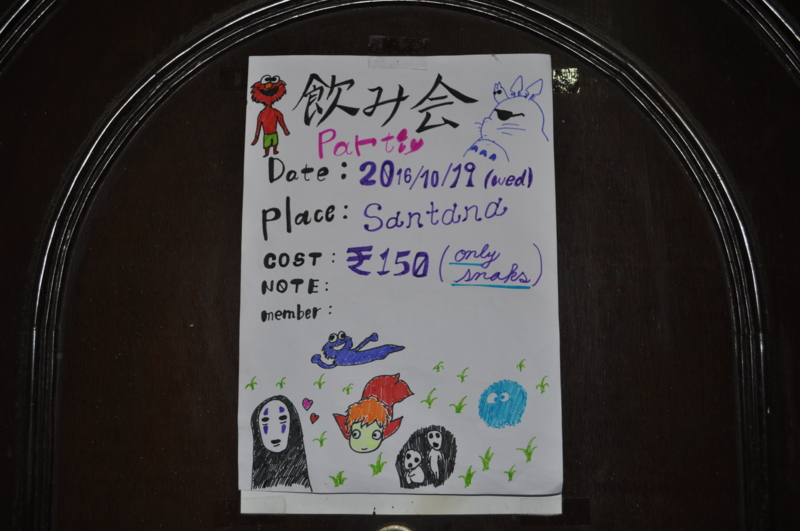 飲み会
Party
Date: 2016/10/19 (wed)
place: Santana
COST: ₹150 (only snaks)
NOTE:
member: